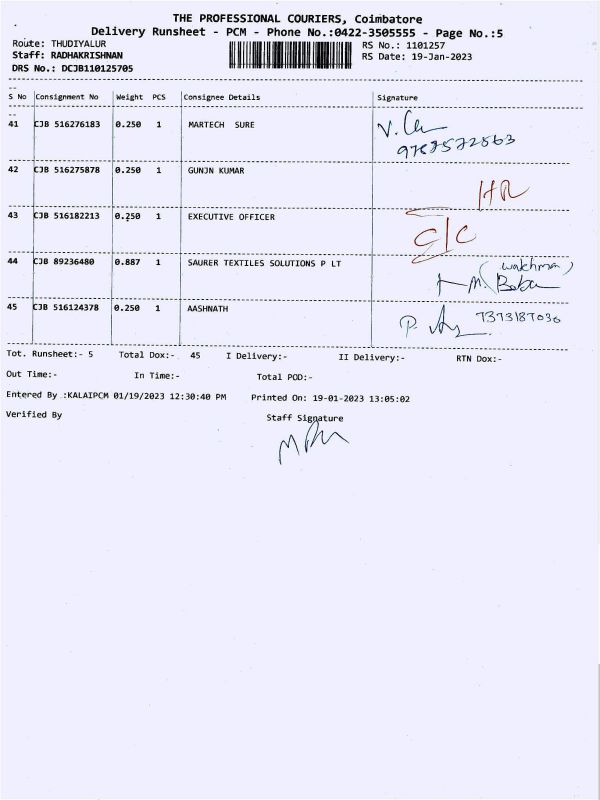 THE PROFESSIONAL COURIERS, Coimbatore
Delivery Runsheet - PCM - Phone No.:0422-3505555 - Page No.:5
Route: THUDIYALUR
Staff: RADHAKRISHNAN
DRS No.: DCJB110125705
RS No.: 1101257
RS Date: 19-Jan-2023
S No Consignment No Weight PCS Consignee Details Signature
41 CJB 516276183 0.250 1 MARTECH SURE
42 CJB 516275878 0.250 1 GUNJN KUMAR HR
43 CJB 516182213 0.250 1 EXECUTIVE OFFICER C/C
44 CJB 89236480 0.887 1 SAURER TEXTILES SOLUTIONS P LT (watchman)
45 CJB 516124378 0.250 1 AASHNATH 7373187036
Tot. Runsheet:- 5 Total Dox:- 45 I Delivery:- II Delivery:- RTN Dox:-
Out Time:- In Time:- Total POD:-
Entered By :KALAIPCM 01/19/2023 12:30:40 PM Printed On: 19-01-2023 13:05:02
Verified By Staff Signature